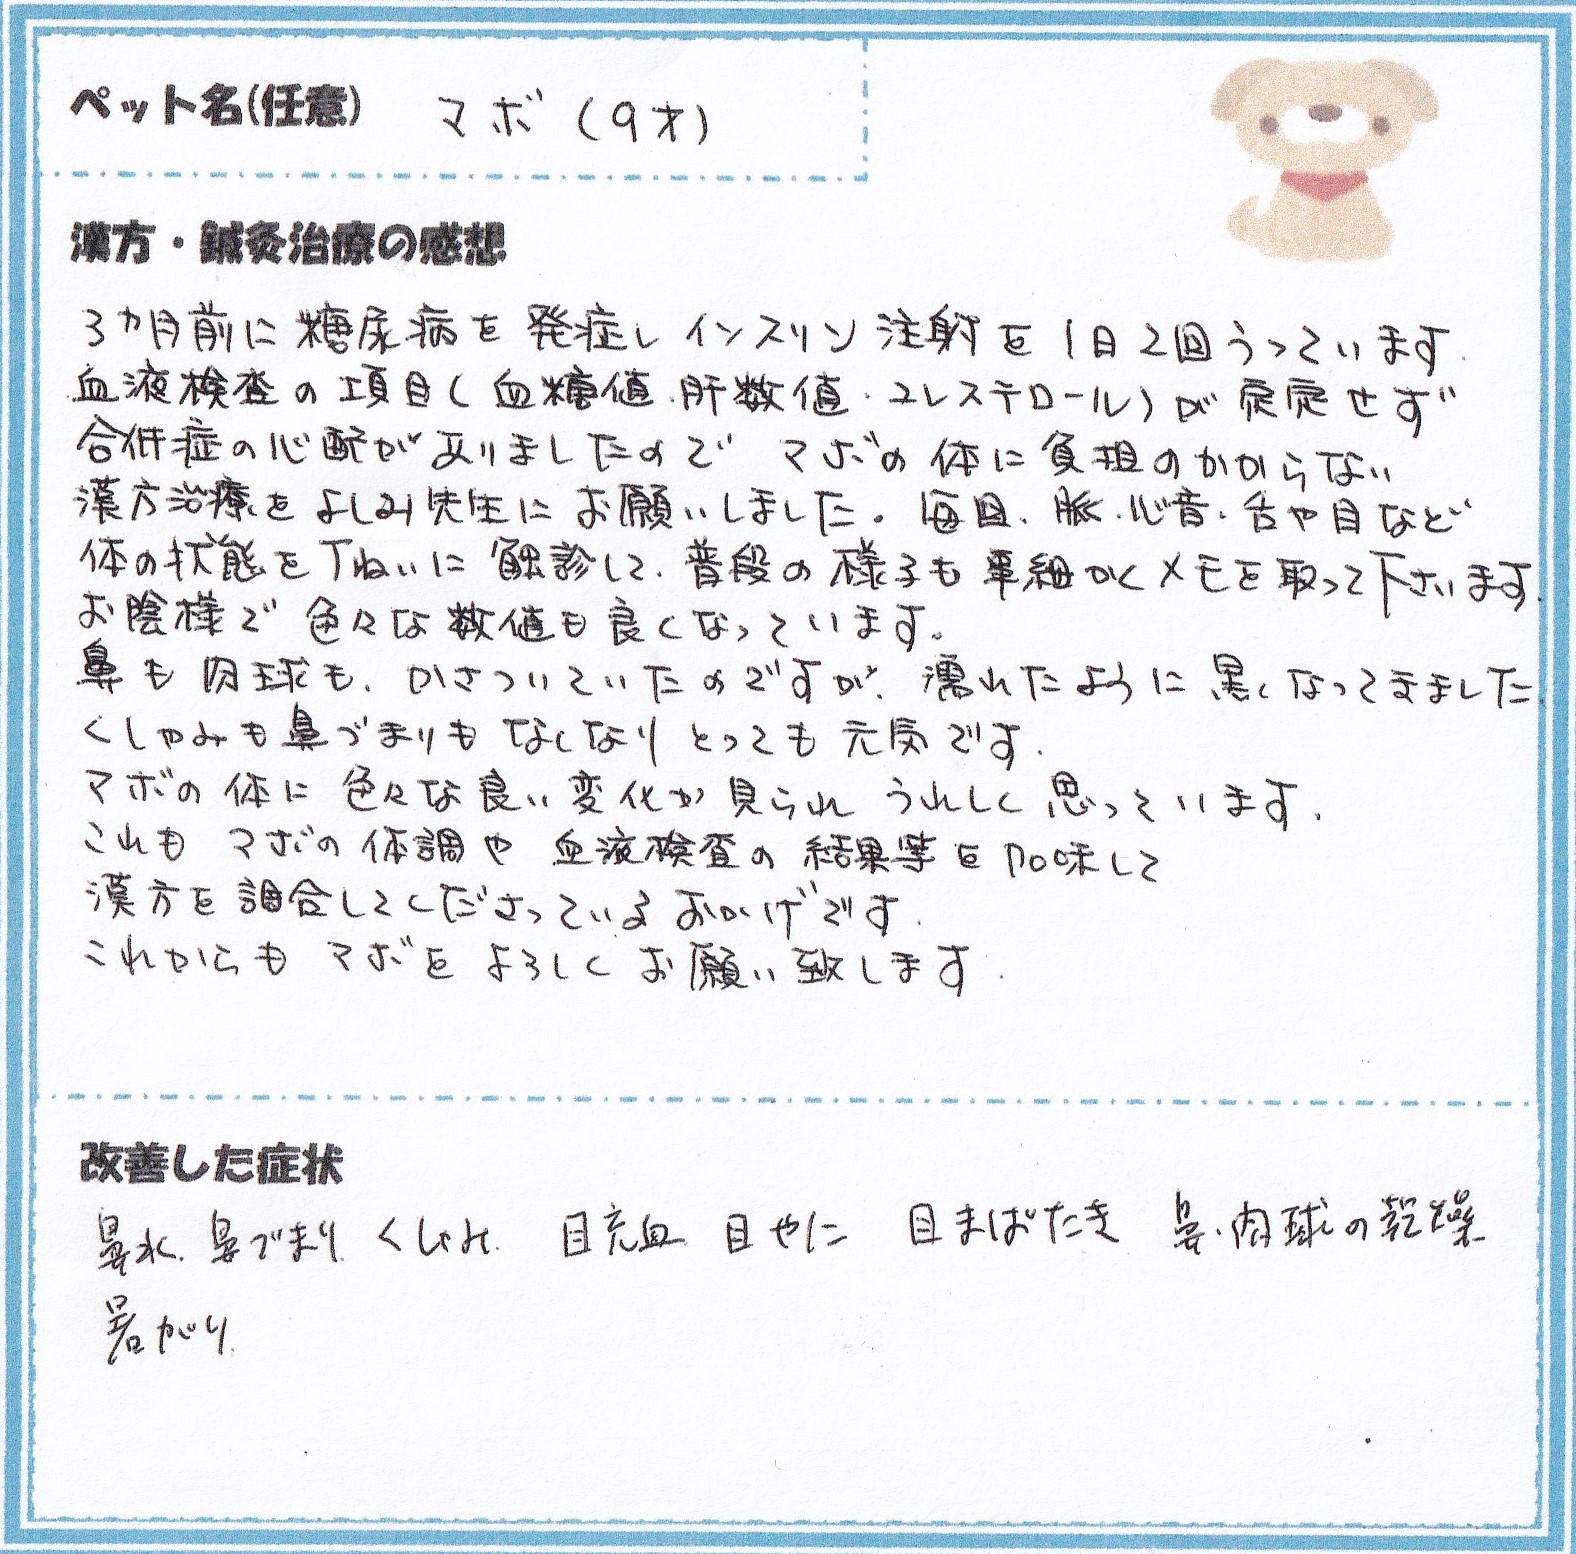 ペット名(任意) マボ(9才)
漢方・鍼灸治療の感想
3カ月前に糖尿病を発症しインスリン注射を1日2回うっています.
血液検査の項目(血糖値.肝数値.コレステロール)が安定せず
合併症の心配がありましたので マボの体に負担のかからない
漢方治療をよしみ先生にお願いしました。毎回、脈.心音.舌や目など
体の状態を丁ねいに触診して.普段の様子も事細かくメモを取って下さいます.
お陰様で色々な数値も良くなっています。
鼻も肉球も、かさついていたのですが、濡れたように黒くなってきました.
くしゃみも鼻づまりもなくなりとっても元気です.
マボの体に色々な良い変化が見られうれしく思っています.
これもマボの体調や血液検査の結果等を加味して
漢方を調合してくださっているおかげです.
これからもマボをよろしくお願い致します.
改善した症状
鼻水.鼻づまり.くしゃみ. 目充血 目やに 目まばたき 鼻・肉球の乾燥
暑がり.